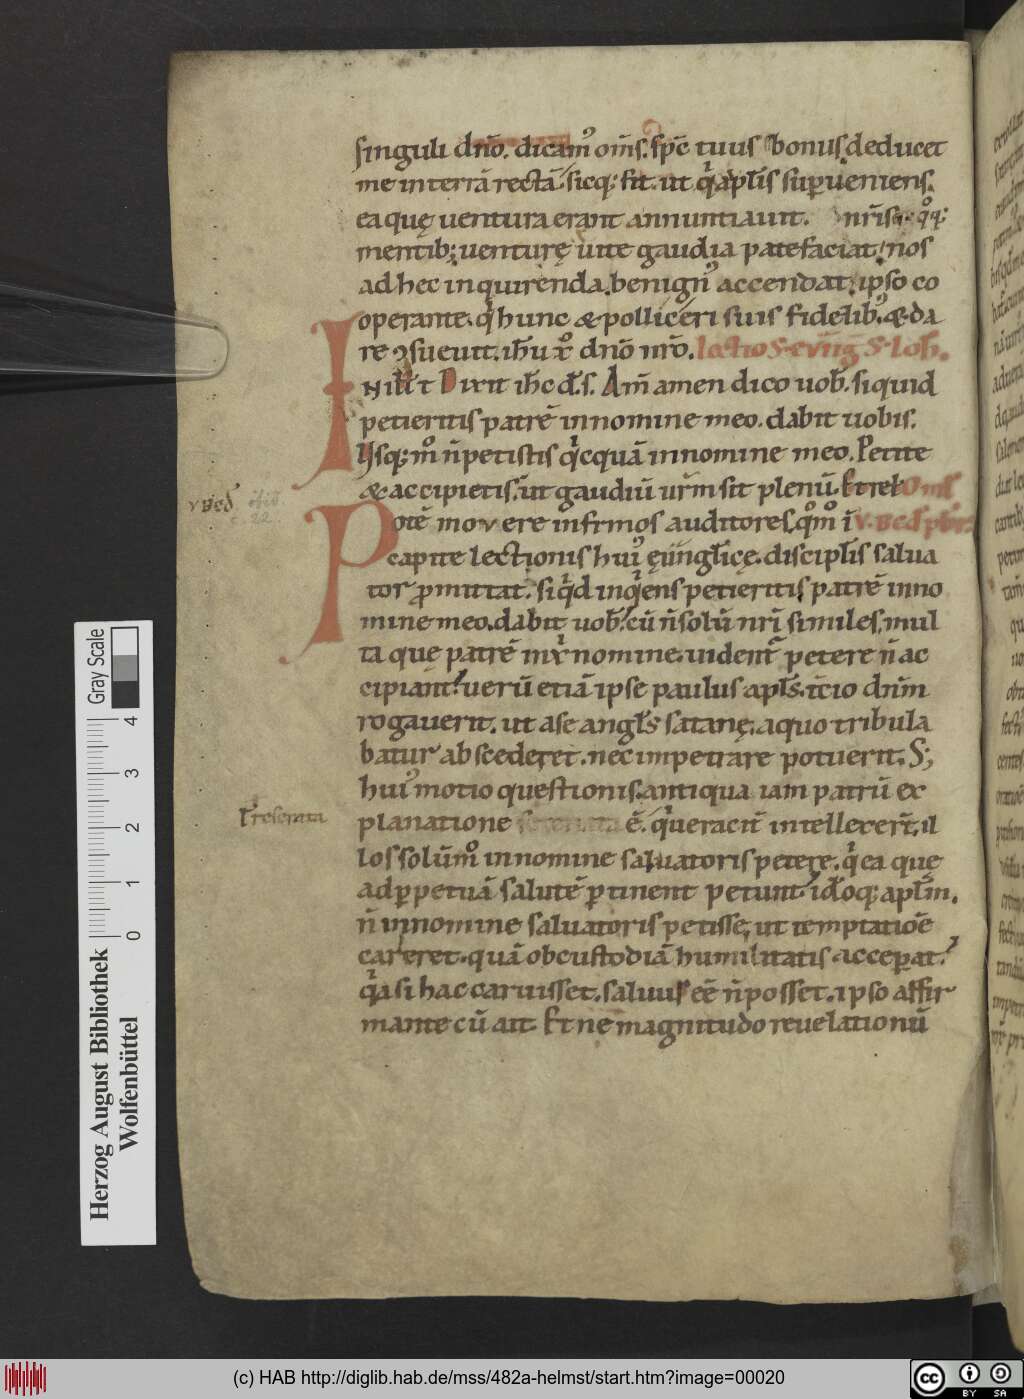 singuli dn̄o. dicam᷒ om̄s. sp̄c tuus bonus deducet
me in terrā rectā. sicq; fit. ut q̇ ap̄lis superueniens.
ea quę uentura erant annuntiauit. nr̄is q̊q;
mentib; uenturę uite gaudia patefaciat. nos
ad hec inquirenda. benign᷒ accendat. ipso co
operante. q̇ hunc & polliceri suis fidelib᷒. & da
re ɔsueuit. ih̄u xp̄o dn̄o nr̄o. Lectio S. eūg S. Ioh̄.
IN ill' t Dixit ih̄c d. s. Am̄ amen dico uob̄. siquid
petieritis patrē in nomine meo. dabit uobis.
Usq; m̊ n̄ petistis q̇cquā in nomine meo. Petite
& accipietis. ut gaudiū ur̄m sit plenū. Et rel' Om̄l
v Bed
Potē movere infirmos auditores. qm̊ ī v. Bed pb̄ri.
capite lectionis hui᷒ ęuuglicę. discipl̄is salua
tor promittat. siq̇d inq̇ens petieritis patrē in no
mine meo. dabit uob̄. cū n̄ solū nr̄i similes. mul
ta quę patrē in xp̄i nomine uident᷑ petere n̄ ac
cipiant. uerū etiā ipse paulus apl̄s. t̄cio dn̄m
rogauerit. ut a se angl̄s satanę. a quo tribula
batur abscederet. nec impetrare potuerit. S;
hui᷒ motio questionis. antiqua iam patrū ex
Preserata
planatione ē. q̇ ueracit̄ intellexer̄t. il
los solūm̊ in nomine saluatoris petere. q̇ ea quę
ad ꝑpetuā salutē ꝑtinent petunt. id̄oq; apl̄m.
n̄ in nomine saluatoris petisse. ut temptatiōe
careret. quā ob custodiā humilitatis acceꝑat.
q̇a si hac caruisset. saluus eē n̄ posset. ipso affir
mante cū ait Et ne magnitudo reuelationū
Gray Scale
4
3
2
1
0
Herzog August Bibliothek
Wolfenbüttel
(c) HAB http://diglib.hab.de/mss/482a-helmst/start.htm?image=00020
cc
BY SA